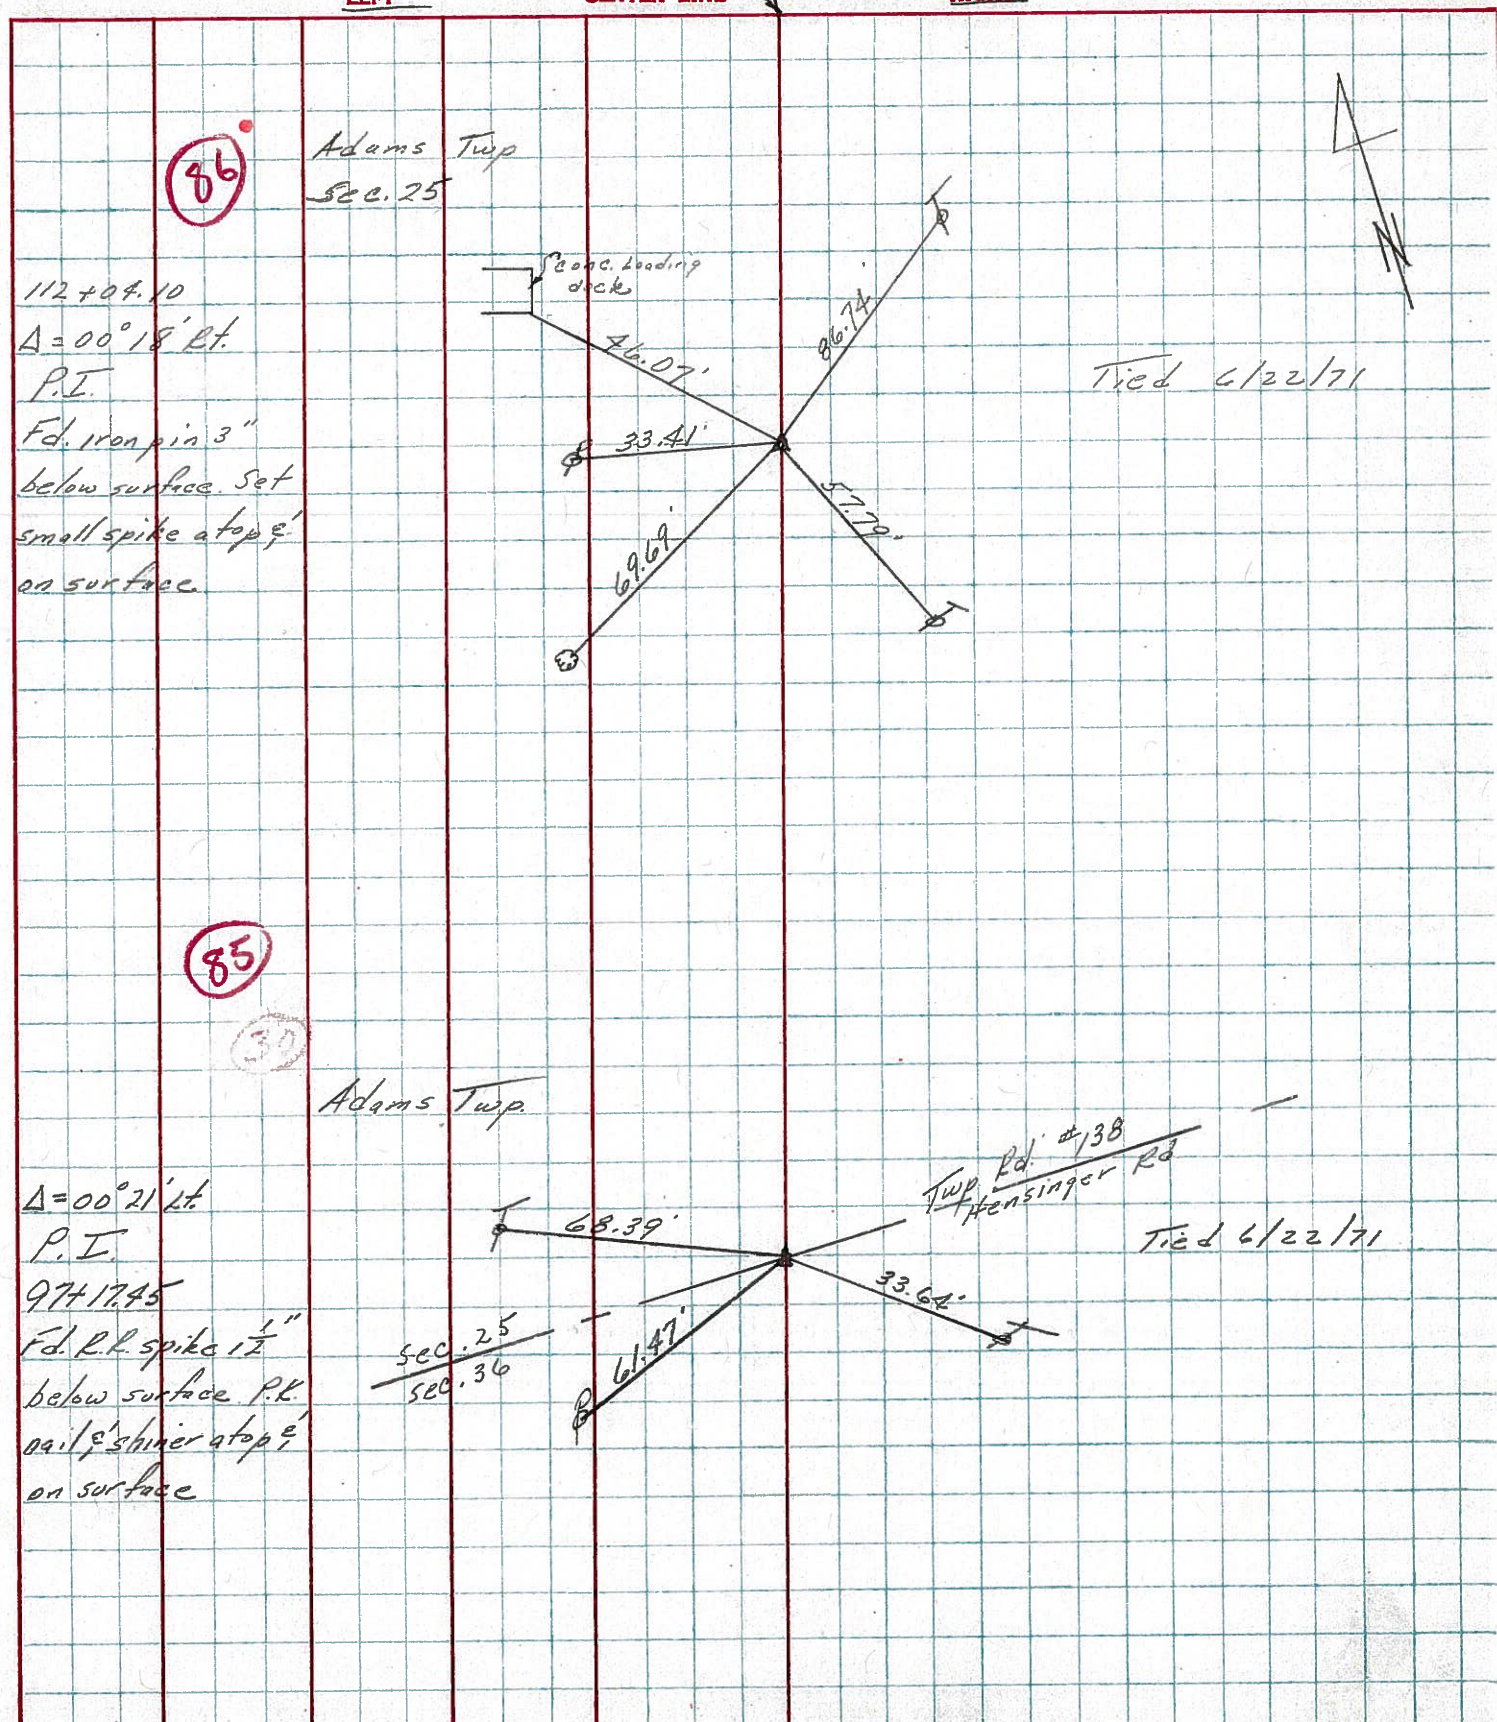 CENTER LINE
86
Adams Twp
Sec. 25
112+04.10
Δ=00°18' Rt.
P.I.
Fd. iron pin 3"
below surface. Set
small spike atop &
on surface
conc. Loading
dock
76.07'
86.74'
33.41'
69.69'
57.79'
N
Tied 6/22/71
85
30
Adams Twp.
Δ=00°21' Lt.
P.I.
97+17.45
Fd. R.R. spike 1 1/2"
below surface P.K.
nail & shiner atop &
on surface
68.39'
61.47'
33.64'
sec. 25
sec. 36
Twp. Rd. #138
Hensinger Rd
Tied 6/22/71